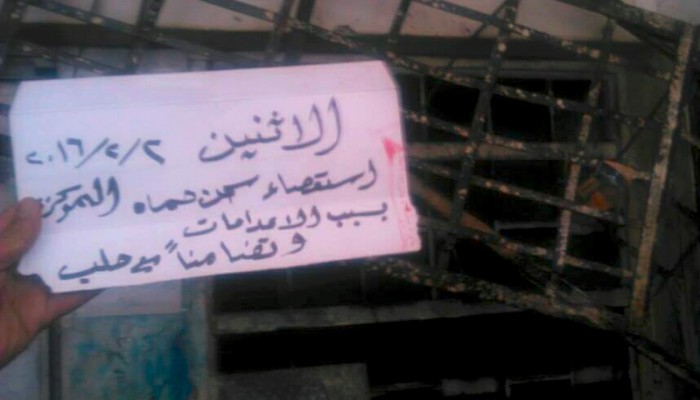 الاثنين
٢٠١٦/٢/٢
استعصاء سجن حماه المركزي
بسبب الاعدامات
وتضامناً مع حلب